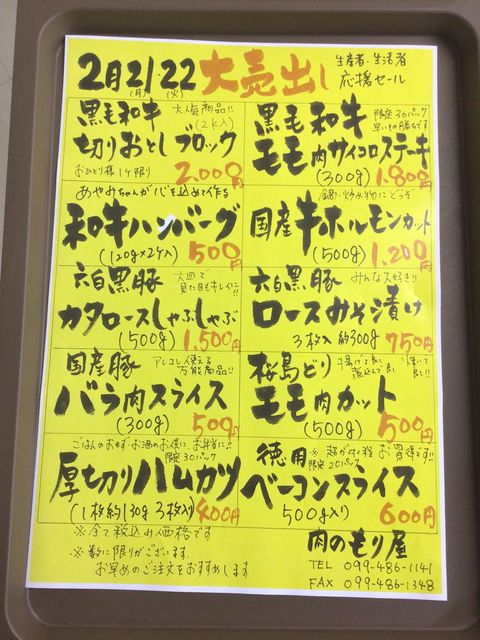 2月21.22 大売出し
(月) (火)
生産者・生活者
応援セール
黒毛和牛 大人気商品!!
(2K入)
切りおとしブロック
おひとり様1ケ限り
2,000円
黒毛和牛 限定30パック
早いもの勝ちです
モモ肉サイコロステーキ
(300g) 1,800円
あやみちゃんが心を込めて作る
和牛ハンバーグ
(120g×2ケ入) 500円
鍋・炒め物にどうぞ
国産牛ホルモンカット
(500g) 1,200円
六白黒豚 大皿で
見た目もキレイ!!
カタロースしゃぶしゃぶ
(500g) 1,500円
六白黒豚 みんな大好き!!
ロースみそ漬け
3枚入 約300g 750円
国産豚 アレコレ使える
万能商品!!
バラ肉スライス
(300g) 500円
桜島どり 揚げて良し 焼いて良し!!
煮込んで良し
モモ肉カット
(500g) 500円
ごはんのおかず・お酒のお供に、お弁当に!!
限定30パック
厚切りハムカツ
(1枚約130g 3枚入) 400円
徳用 お買得です!!
限定20パック
ベーコンスライス
500g入り 600円
※全て税込み価格です
※数に限りがございます。
お早めのご注文をおすすめします
肉のもり屋
TEL 099-486-1141
FAX 099-486-1348